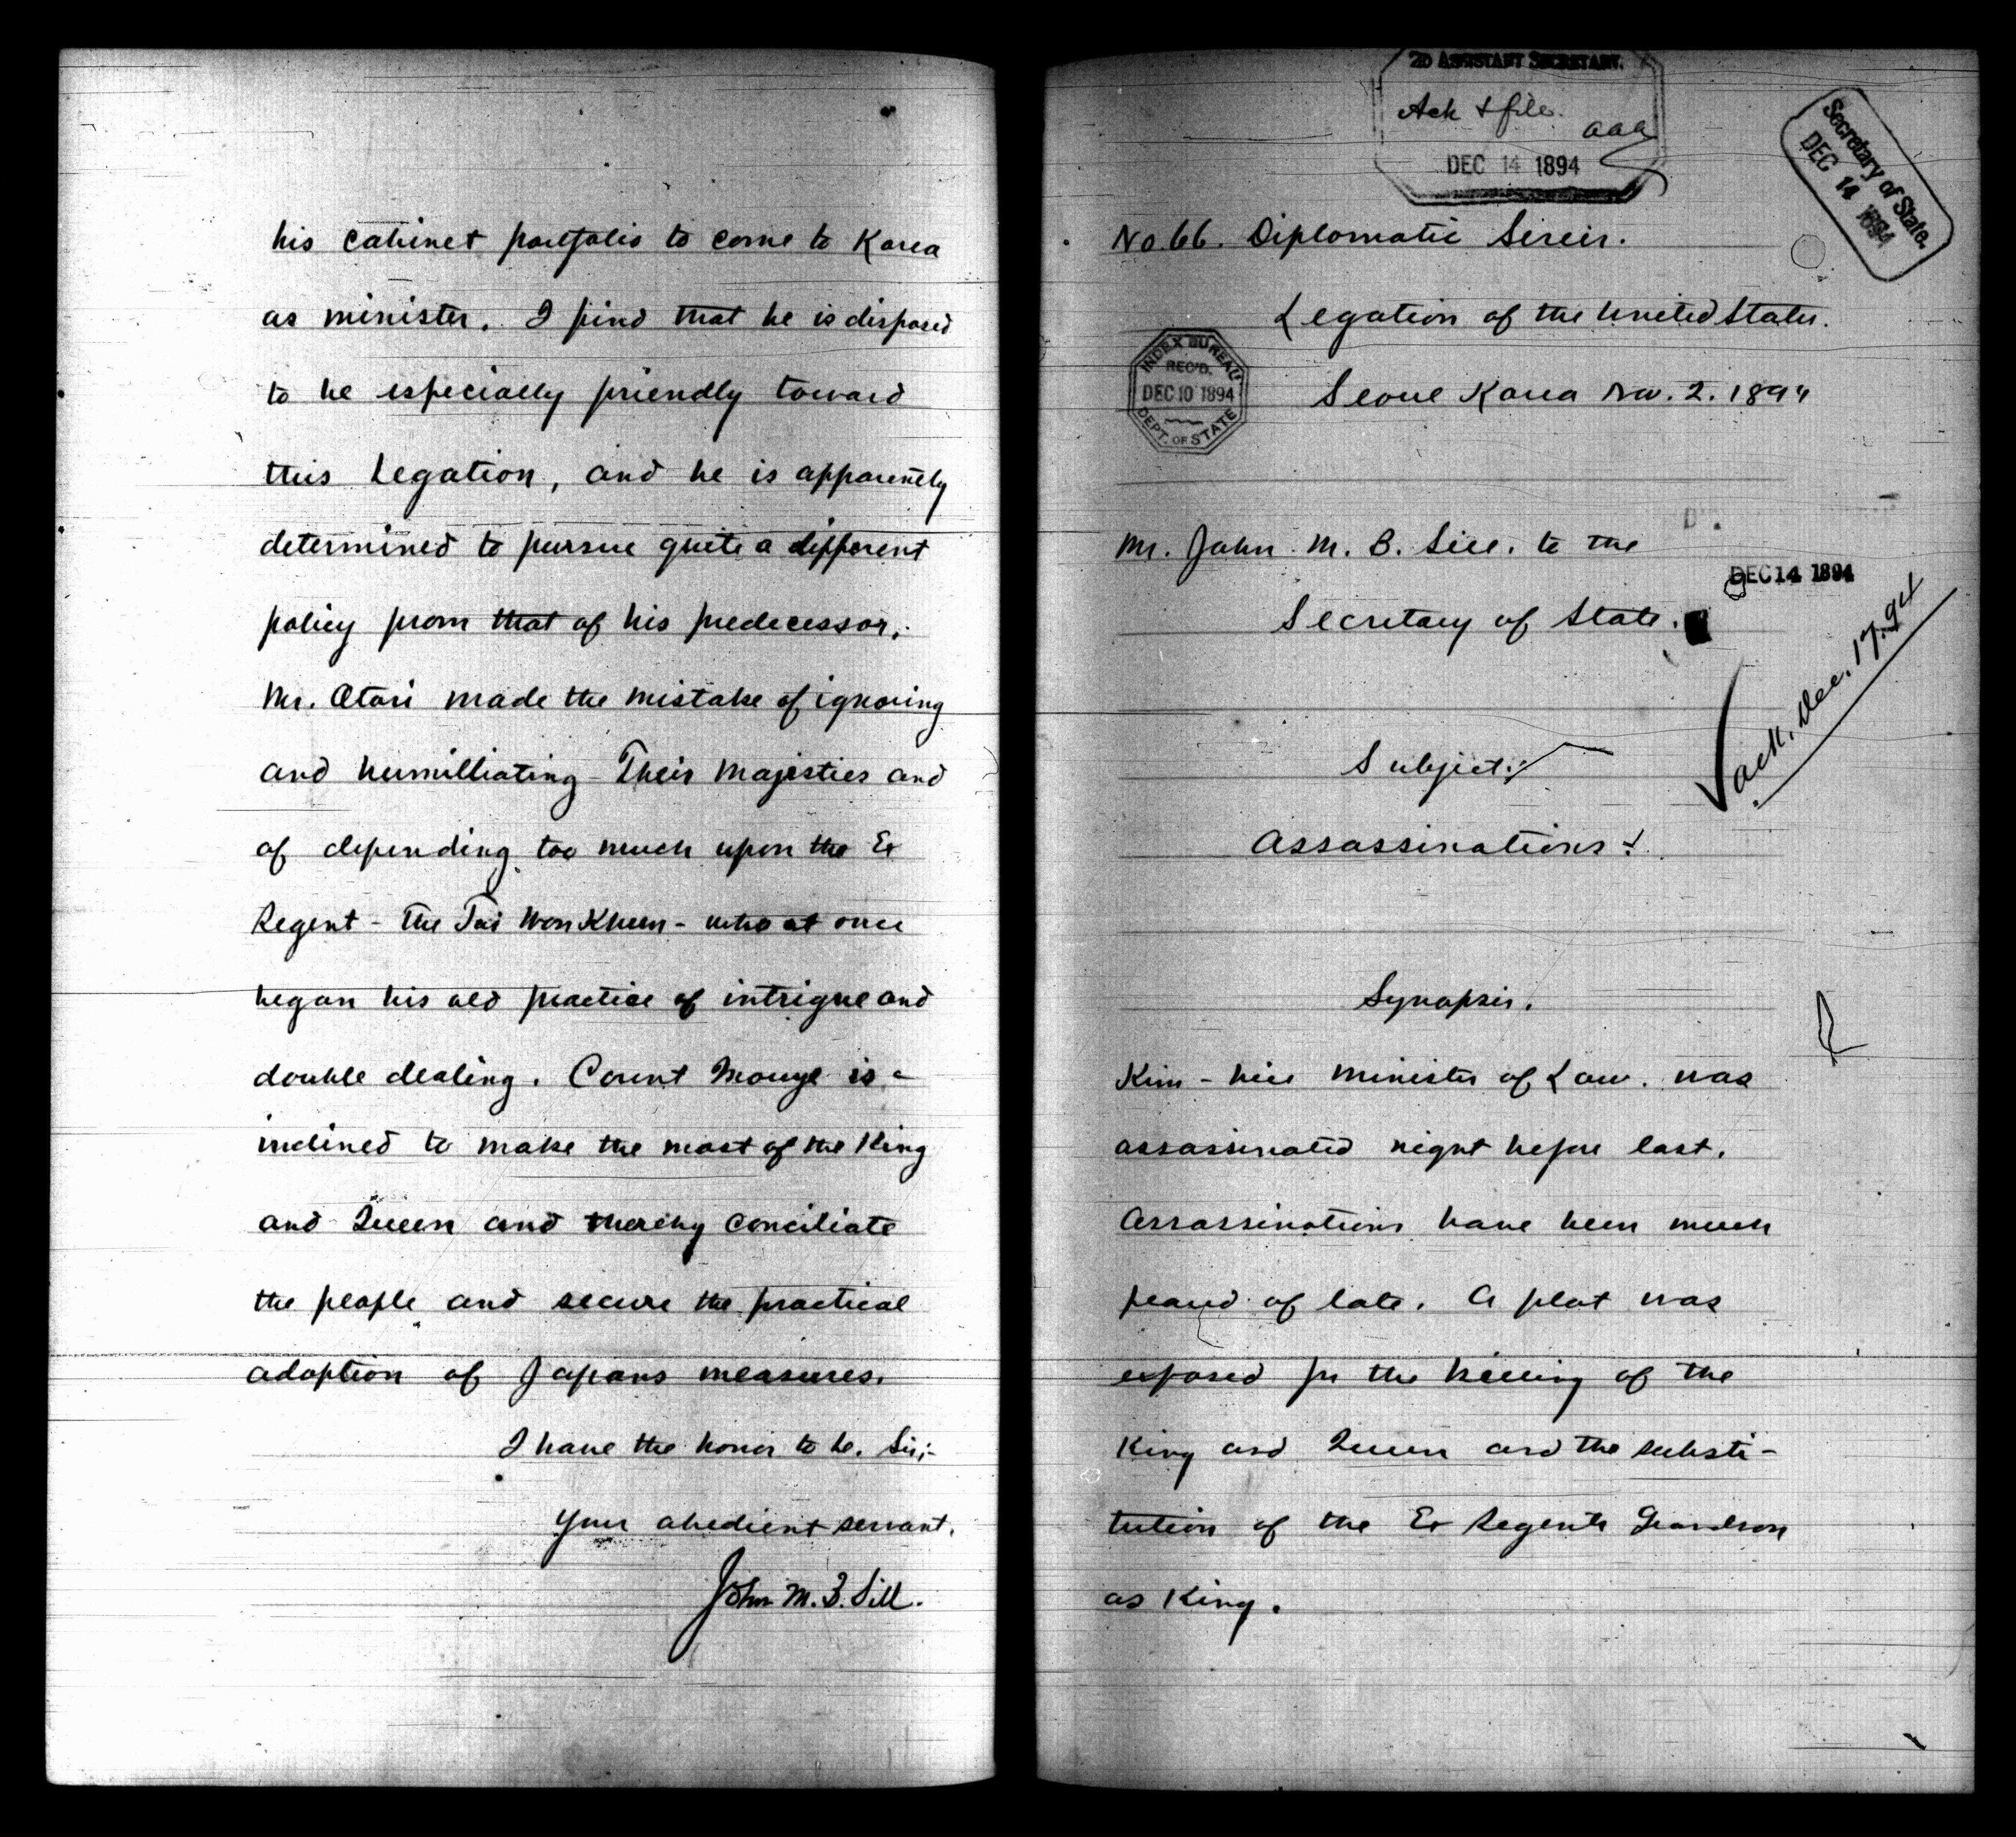 his cabinet portfolio to come to Korea
as minister. I find that he is disposed
to be especially friendly toward
this Legation, and he is apparently
determined to pursue quite a different
policy from that of his predecessor.
Mr. Otori made the mistake of ignoring
and humilliating Their Majesties and
of depending too much upon the Ex
Regent - the Tai Won Khun - who at once
began his old practice of intrigue and
double dealing. Count Inouye is
inclined to make the most of the King
and Queen and thereby conciliate
the people and secure the practical
adoption of Japans measures.
I have the honor to be, Sir;-
Your obedient servant,
John M. B. Sill.
2D ASSISTANT SECRETARY.
Ack & file.
aaa
DEC 14 1894
Secretary of State.
DEC 14 1894
No. 66. Diplomatic Series.
Legation of the United States.
INDEX BUREAU
REC'D.
DEC 10 1894
DEPT. OF STATE
Seoul Korea Nov. 2. 1894
Mr. John M. B. Sill. to the
DEC 14 1894
Secretary of State.
ack. Dec. 17. 94
Subject:
Assassinations.
Synopsis.
Kim - Vice Minister of Law. was
assassinated night before last.
Assassinations have been much
feared of late. A plot was
exposed for the killing of the
King and Queen and the substi-
tution of the Ex Regents Grandson
as King.